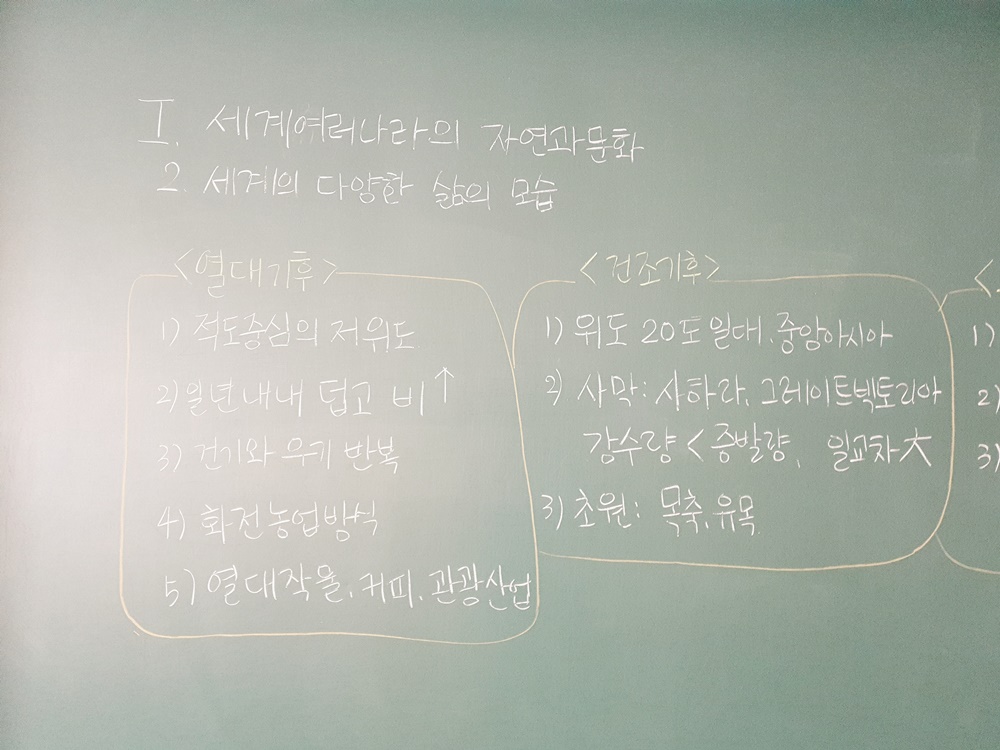 I. 세계여러나라의 자연과문화
2. 세계의 다양한 삶의 모습
<열대기후>
1) 적도중심의 저위도
2) 일년내내 덥고 비↑
3) 건기와 우기 반복
4) 화전농업방식
5) 열대작물, 커피, 관광산업
<건조기후>
1) 위도 20도 일대, 중앙아시아
2) 사막: 사하라, 그레이트빅토리아
강수량 < 증발량, 일교차大
3) 초원: 목축, 유목
<
1)
2)
3)